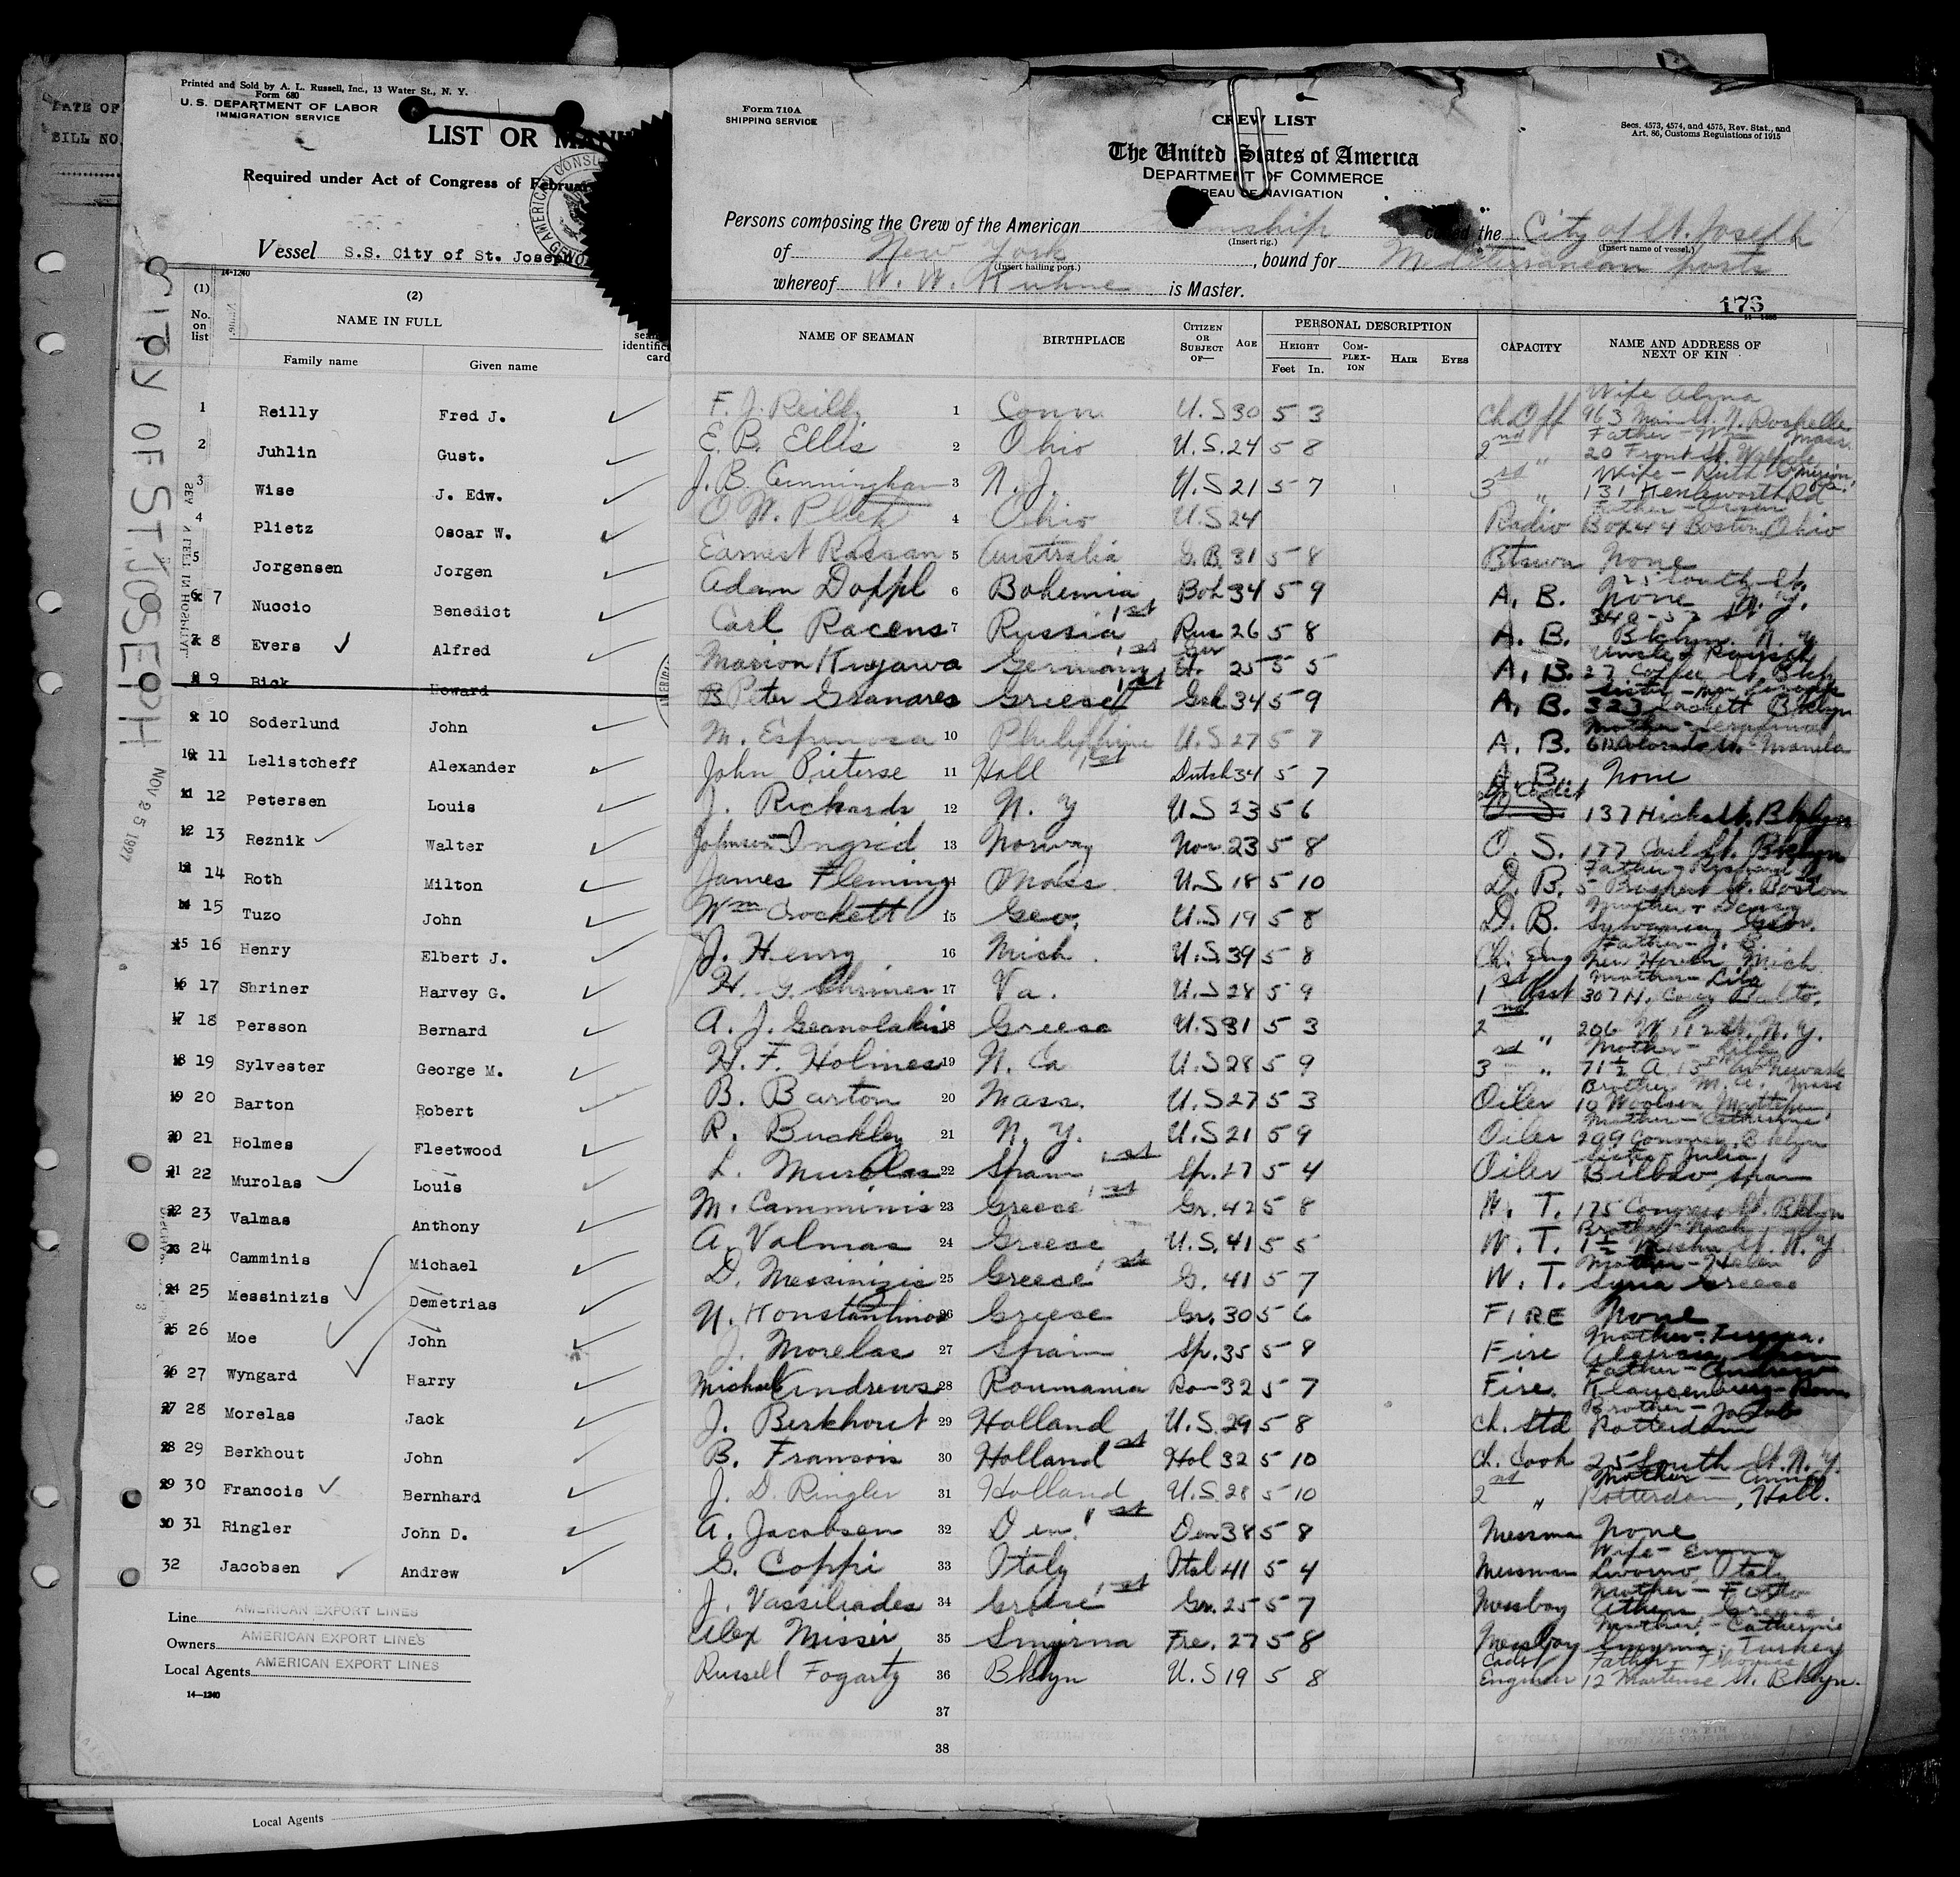 DATE OF
BILL NO.
Printed and Sold by A. L. Russell, Inc., 13 Water St., N. Y.
Form 680
U. S. DEPARTMENT OF LABOR
IMMIGRATION SERVICE
LIST OR MAN
Required under Act of Congress of Februar
AMERICAN CONSU
Vessel S.S. City of St. Joseph
14-1240
(1) (2)
No. on list
NAME IN FULL
Family name Given name
identific card
CITY OF ST. JOSEPH
NOV 25 1927
1 Reilly Fred J.
2 Juhlin Gust.
3 Wise J. Edw.
4 Plietz Oscar W.
5 Jorgensen Jorgen
6 7 Nuccio Benedict
7 8 Evers Alfred
8 9 Bick Howard
9 10 Soderlund John
10 11 Lelistcheff Alexander
11 12 Petersen Louis
12 13 Reznik Walter
13 14 Roth Milton
14 15 Tuzo John
15 16 Henry Elbert J.
16 17 Shriner Harvey G.
17 18 Persson Bernard
18 19 Sylvester George M.
19 20 Barton Robert
20 21 Holmes Fleetwood
21 22 Murolas Louis
22 23 Valmas Anthony
23 24 Camminis Michael
24 25 Messinizis Demetrias
25 26 Moe John
26 27 Wyngard Harry
27 28 Morelas Jack
28 29 Berkhout John
29 30 Francois Bernhard
30 31 Ringler John D.
32 Jacobsen Andrew
Line AMERICAN EXPORT LINES
Owners AMERICAN EXPORT LINES
Local Agents AMERICAN EXPORT LINES
14-1240
Local Agents
Form 710A
SHIPPING SERVICE
CREW LIST
The United States of America
DEPARTMENT OF COMMERCE
BUREAU OF NAVIGATION
Secs. 4573, 4574, and 4575, Rev. Stat., and
Art. 86, Customs Regulations of 1915
Persons composing the Crew of the American Steamship called the City of St. Joseph
(Insert rig.) (Insert name of vessel.)
of New York, bound for Mediterranean ports
(Insert hailing port.)
whereof W. W. Kuhne is Master.
173
NAME OF SEAMAN BIRTHPLACE CITIZEN OR SUBJECT OF— AGE PERSONAL DESCRIPTION CAPACITY NAME AND ADDRESS OF NEXT OF KIN
HEIGHT COMPLEXION HAIR EYES
Feet In.
F. J. Reilly 1 Conn U.S 30 5 3 Ch Off Wife Alma 963 Main St. N. Rochelle
E. B. Ellis 2 Ohio U.S. 24 5 8 2nd " Father - Wm 20 Front St. Walpole Mass.
J. B. Cunningham 3 N. J. U.S 21 5 7 3rd " Wife - Ruth 131 Kenilworth Rd
O. W. Plietz 4 Ohio U.S 24 Radio Father - Box 44 Boston, Ohio
Earnest Rassan 5 Australia G.B. 31 5 8 Btswn None
Adam Doppl 6 Bohemia Boh 34 5 9 A. B. None 25 South St. N. Y.
Carl Racens 7 Russia 1st Rus 26 5 8 A. B. Bklyn. N. Y.
Marion Kujawa Germany 1st Ger 25 5 5 A. B. Uncle 27 Coffee St. Bkln
Peter Granares Greese 1st Grk 34 5 9 A. B. Sister - Mrs 323 Sackett Bklyn
M. Espinosa 10 Philippine U.S 27 5 7 A. B. Mother - Manila
John Pieterse 11 Holl 1st Dutch 34 5 7 A. B. None
J. Richards 12 N. Y U.S 23 5 6 O. S. Dk Cadet 137 Hicks St. Bklyn
Johnsen Ingrid 13 Norway Nor. 23 5 8 O. S. 177 Carl St. Bklyn
James Fleming 14 Mass. U.S 18 5 10 D. B. Father - 5 St. Boston
Wm Crockett 15 Geo. U.S 19 5 8 D. B. Mother - Sylvania Geor.
J. Henry 16 Mich. U.S. 39 5 8 Ch. Eng Father - J. B. New Haven Mich
H. G. Shriner 17 Va. U.S 28 5 9 1st Asst Mother - Lila 307 N. Carey Balto.
A. J. Geanolakis 18 Greese U.S 31 5 3 2nd " 206 W 112 St. N. Y.
H. F. Holmes 19 N. Ca U.S 28 5 9 3rd " Mother - 71½ A. 15th Av Newark
B. Barton 20 Mass. U.S 27 5 3 Oiler Brother M. A. 10 Woolson, Mattapan, Mass
R. Buckley 21 N. Y. U.S 21 5 9 Oiler Mother - Catherine 299 Conover, Bklyn
L. Murolas 22 Spain 1st Sp. 27 5 4 Oiler Sister - Julia Bilbao, Spain
M. Camminis 23 Greese 1st Gr. 42 5 8 W. T. 175 Congress St. Bklyn
A. Valmas 24 Greese U.S. 41 5 5 W. T. Brother - Nick St. N. Y.
D. Messinizis 25 Greese 1st G. 41 5 7 W. T. Mother - Helen Syria Greese
N. Konstantinos 26 Greese Gr. 30 5 6 FIRE None
J. Morelas 27 Spain Sp. 35 5 8 Fire Mother - Teressa. Spain
Michael Andrews 28 Roumania Rom 32 5 7 Fire. Father - Andrew Klausenburg - Roum
J. Berkhout 29 Holland U.S. 29 5 8 Ch. Std Brother - Jacob Rotterdam
B. Fransois 30 Holland 1st Hol 32 5 10 Ch. Cook 25 South St. N. Y.
J. D. Ringler 31 Holland U.S. 28 5 10 2nd " Mother - Anna Rotterdam, Holl.
A. Jacobsen 32 Den. 1st Den 38 5 8 Messman None
G. Coppi 33 Italy Ital 41 5 4 Messman Wife - Emma Livorno, Italy
J. Vassiliades 34 Greese 1st Gr. 25 5 7 Messboy Mother - Athens, Greese
Alex Misser 35 Smyrna Fre. 27 5 8 Messboy Mother, - Catherine Smyrna, Turkey
Russell Fogarty 36 Bklyn U.S 19 5 8 Cadet Engineer Father - Thomas 12 Martense St. Bklyn.
37
38